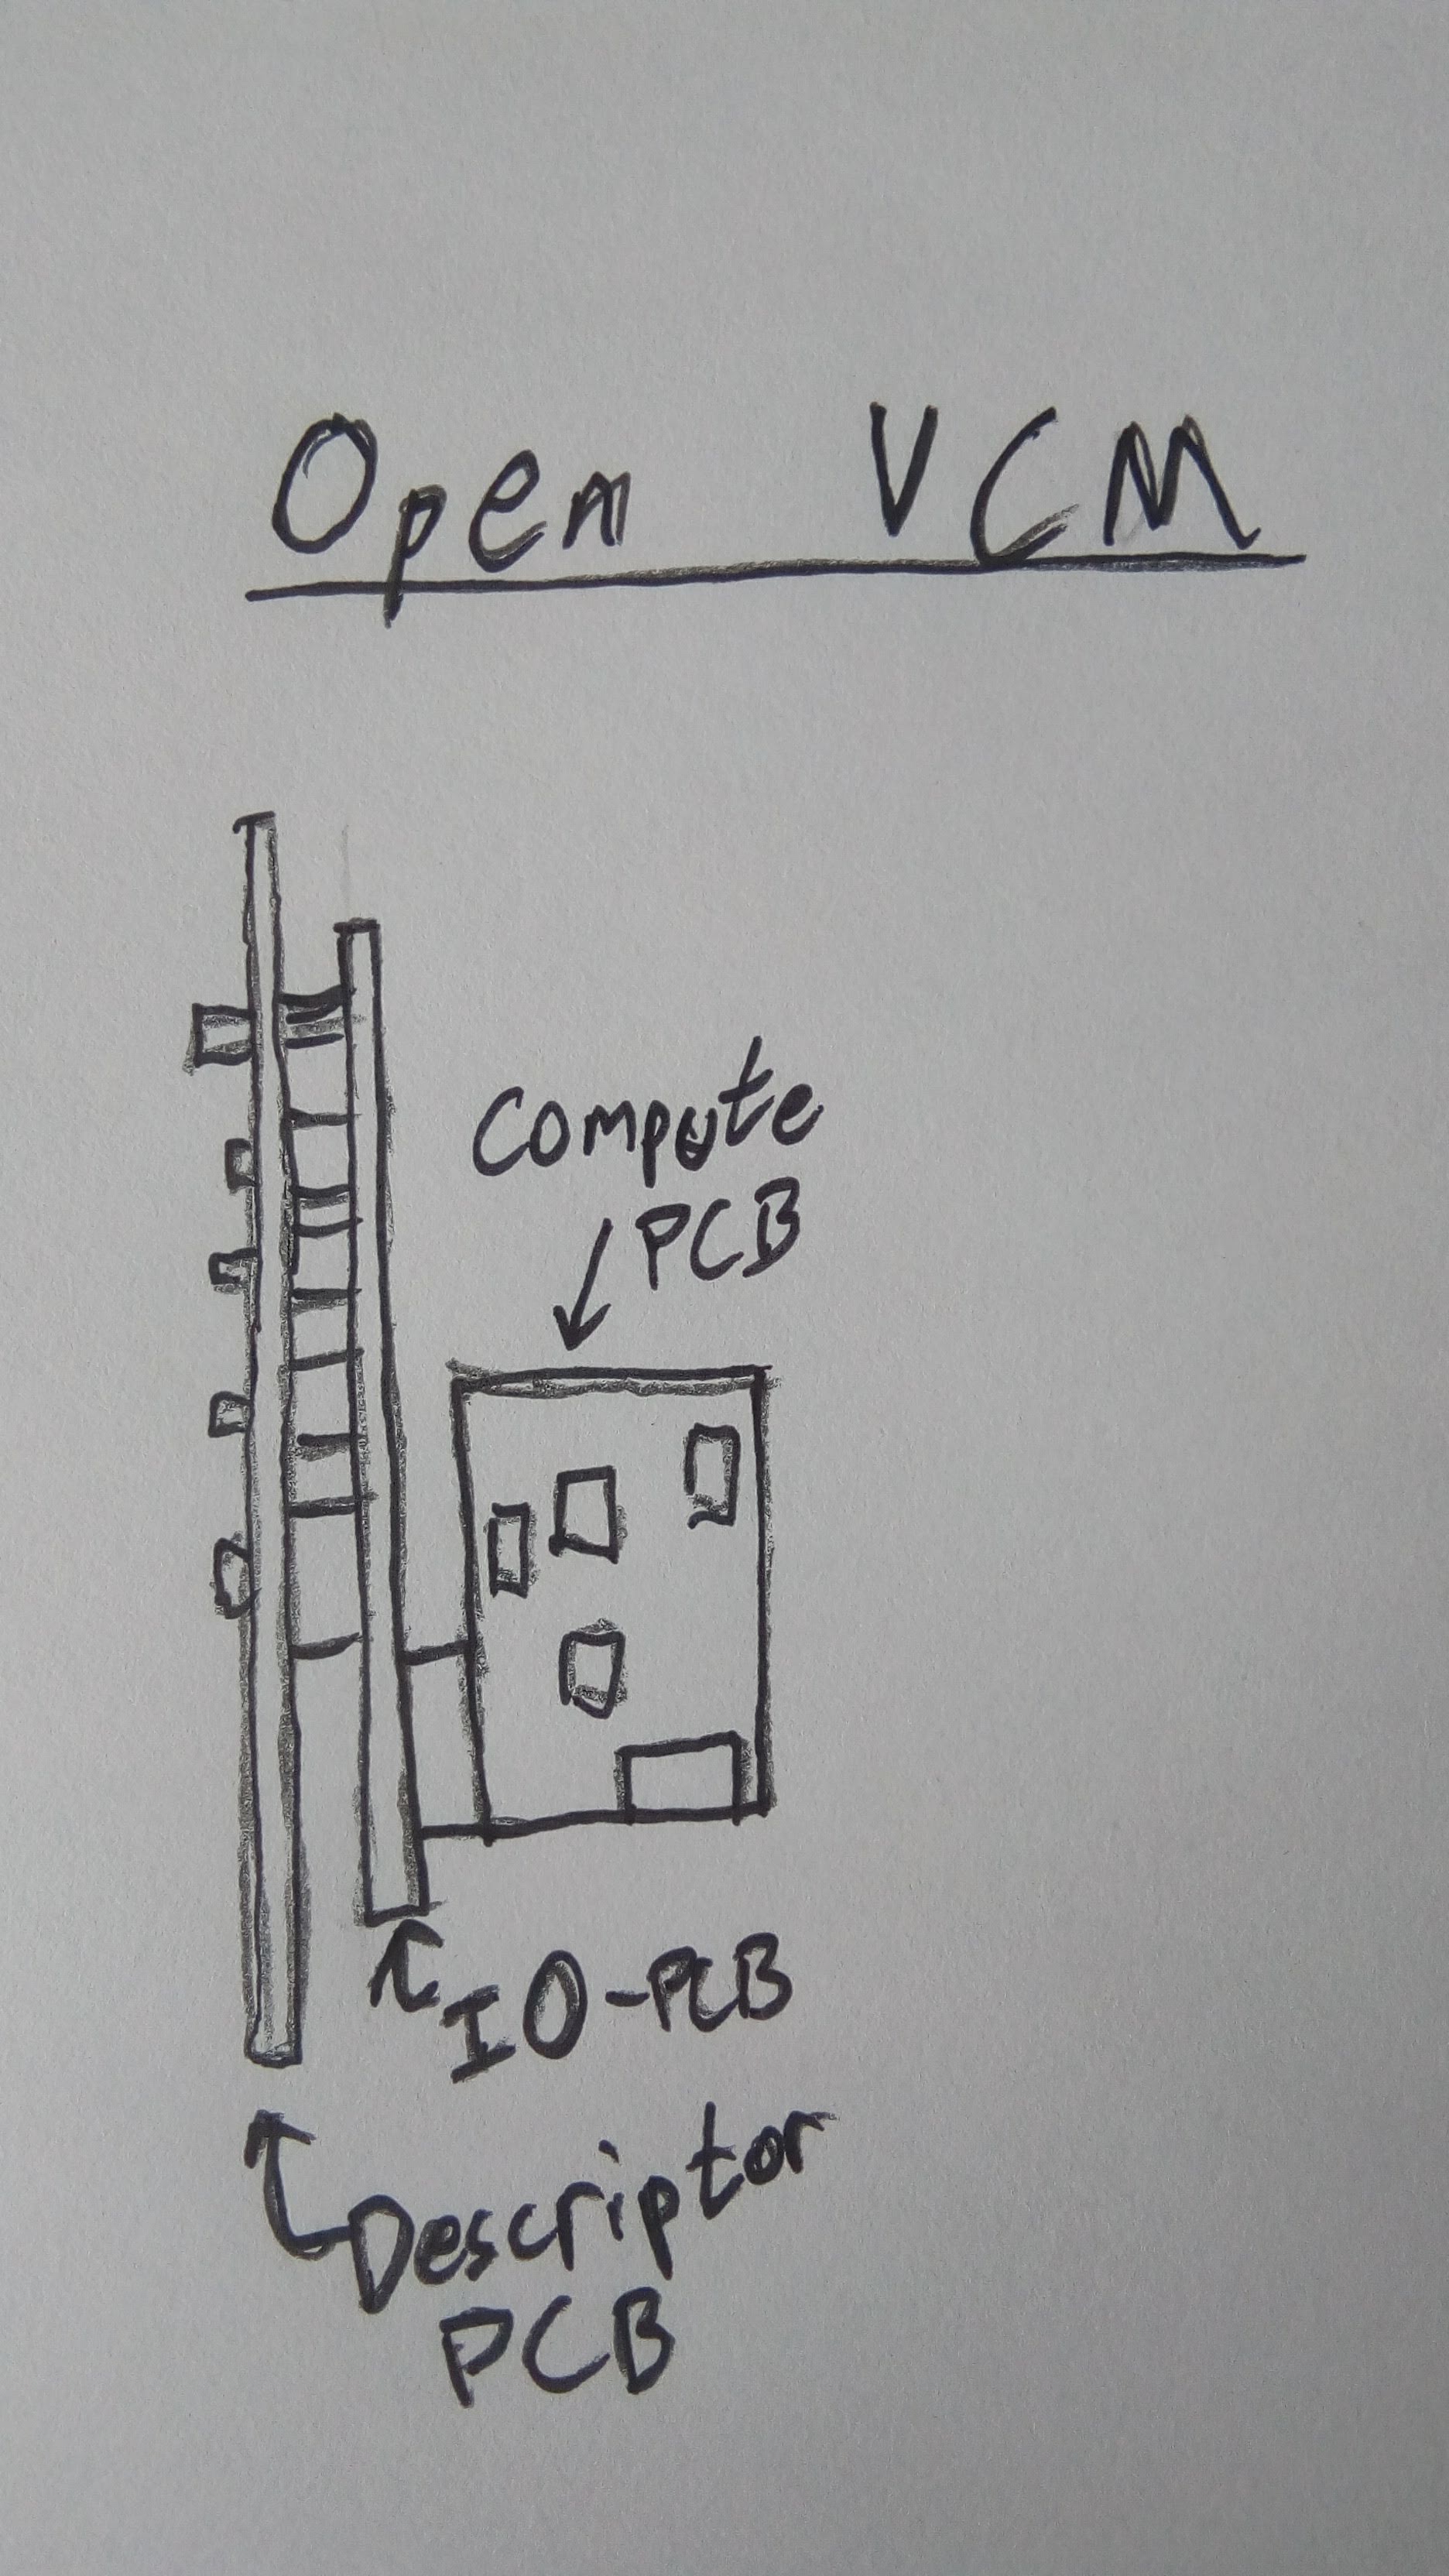 Open VCM
Compute
PCB
IO-PCB
Descriptor
PCB